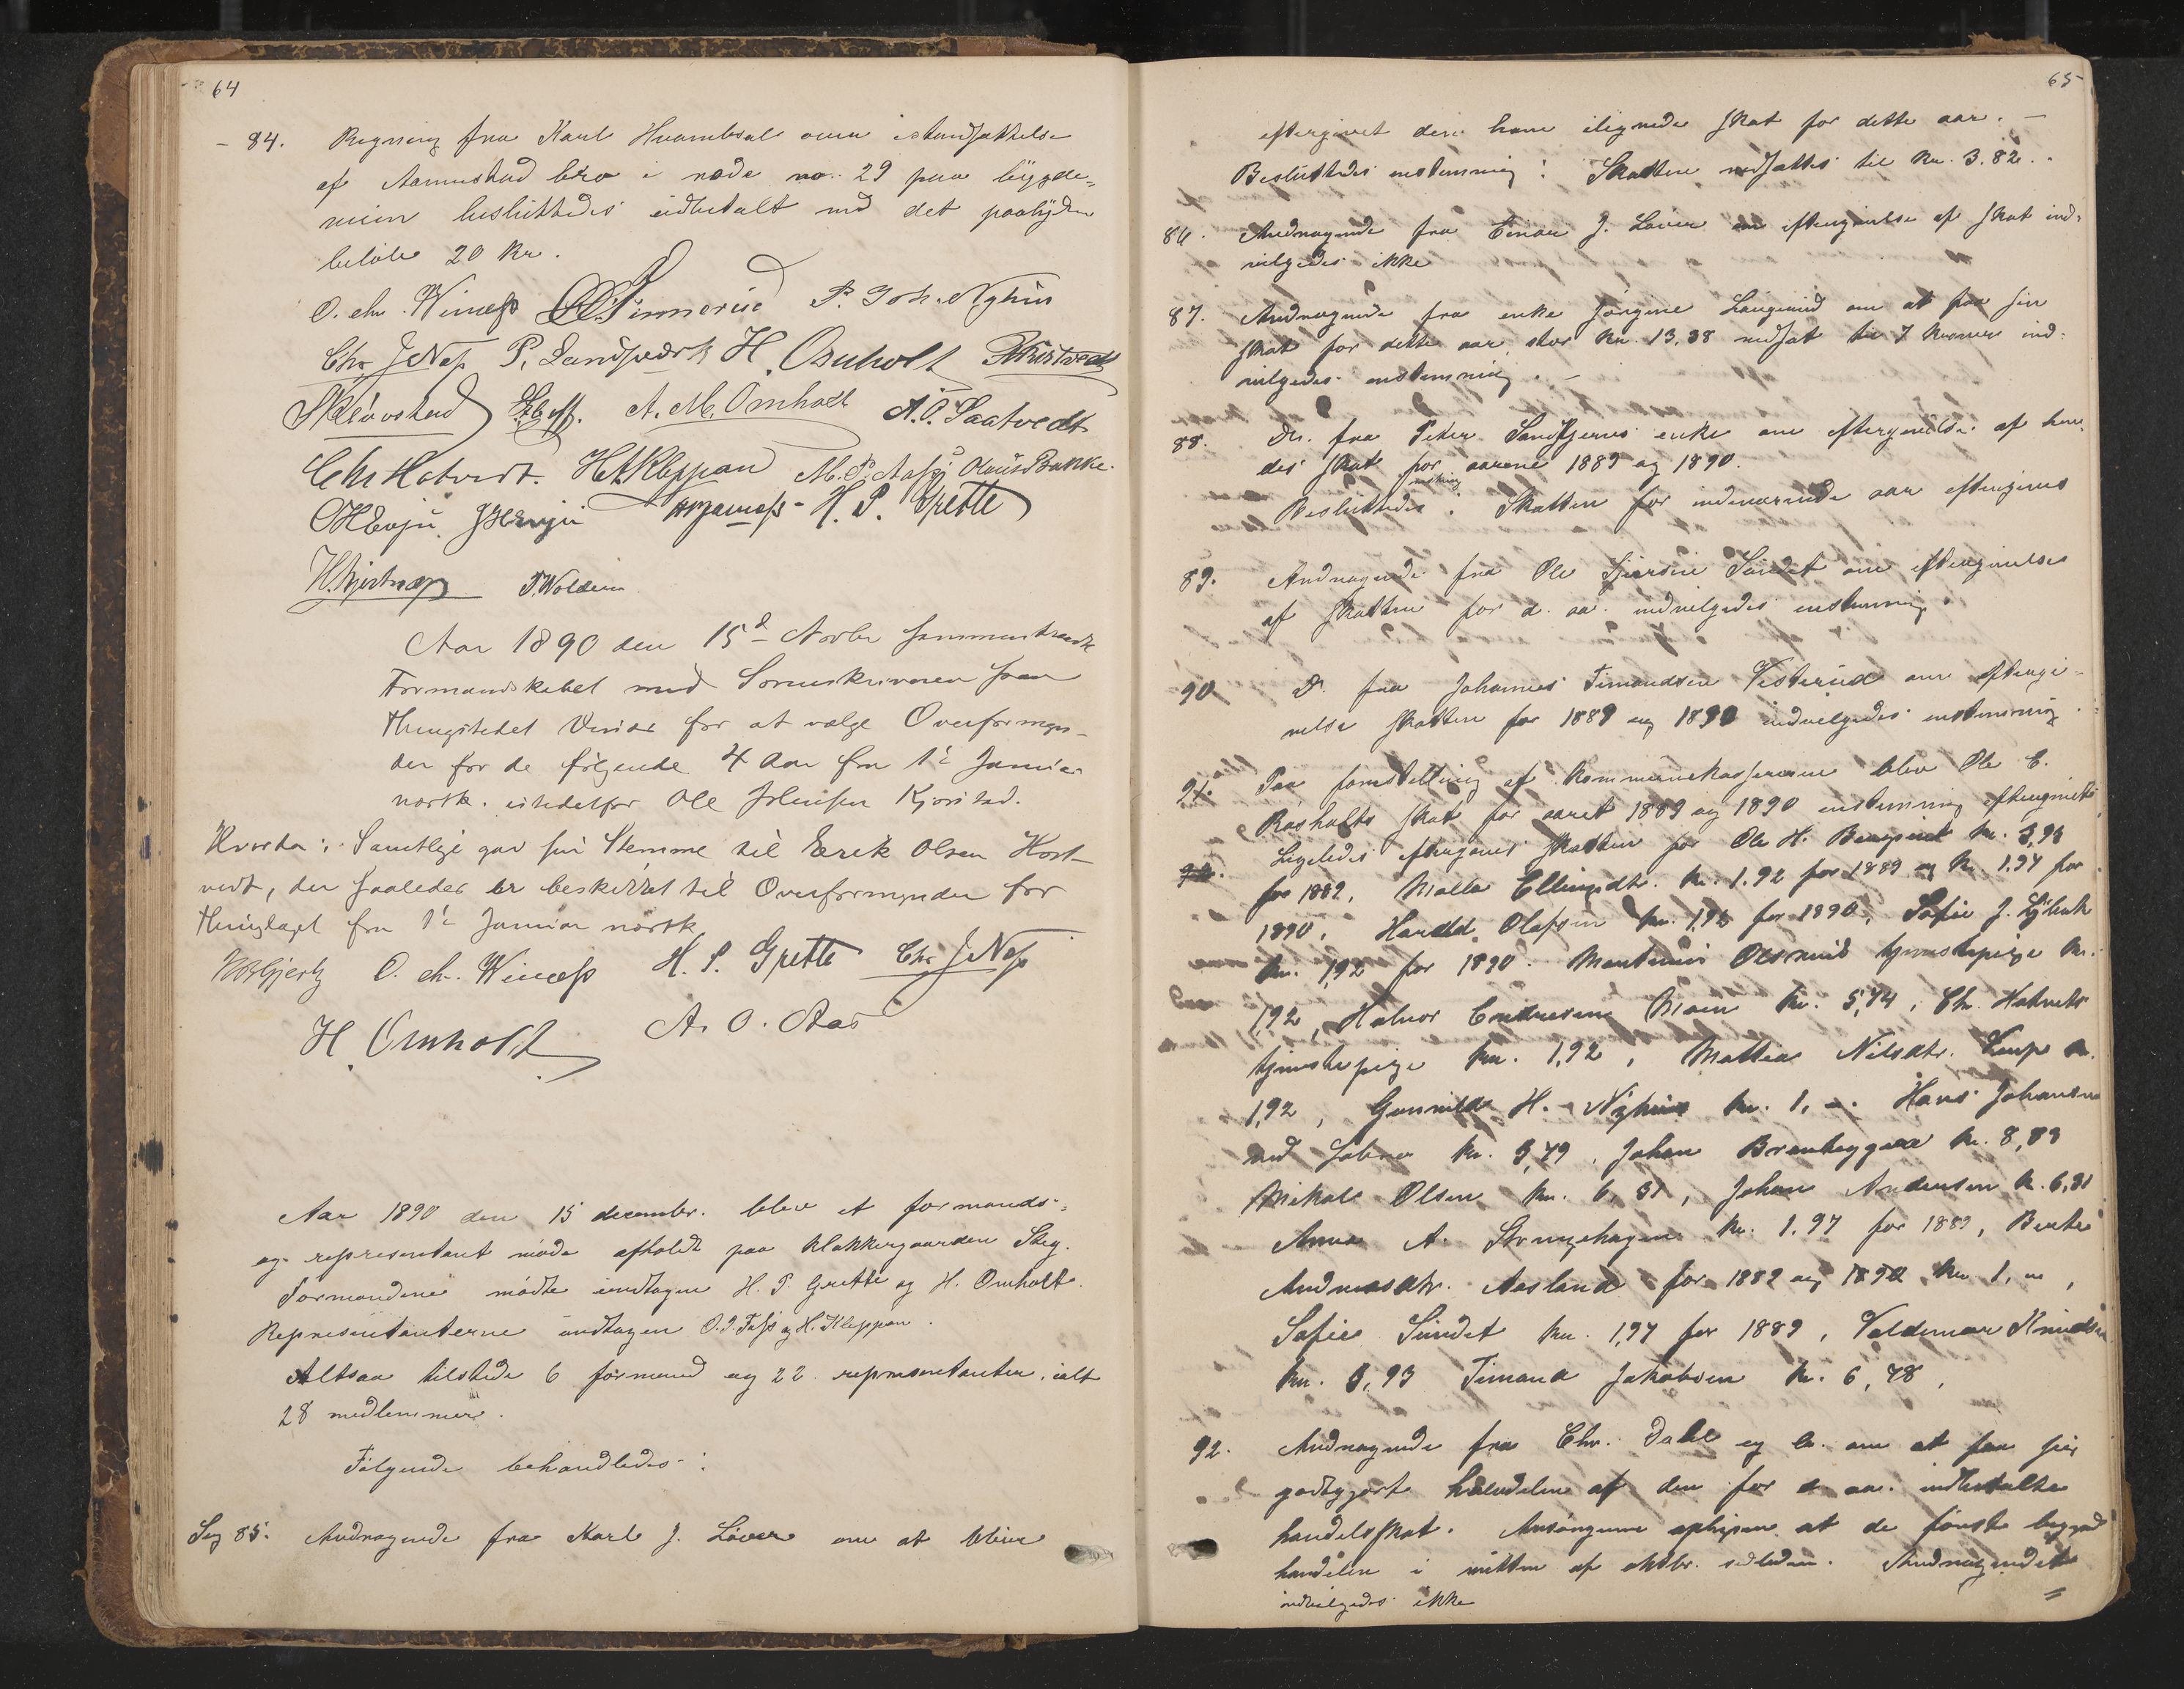 64
84. Regning fra Karl Hvambsal over istandsættelse
af Aamustad bro i rode no. 29 paa bygde-
veien besluttedes udbetalt med det paalydende
beløb 20 kr.
O. Chr. Winness P. Joh. Nyhus
Chr. J. Næss P. Landsværk H. Omholt
A. M. Omholt A. O. Saatvedt
Chr Hotvedt. H. A. Kleppan M. P. Olaus Bakke.
O H Evju. J H Evju H. P. Grette
T. Wolden
Aar 1890 den 15de Novbr sammentraadte
Formandskabet med Sorenskriveren paa
Thingstedet for at vælge Overformyn-
der for de følgende 4 Aar fra 1ste Januar
næstk. istedetfor Ole Kjørstad.
Hvorda: Samtlige gav sin Stemme til Eerik Olsen Host-
vedt, der saaledes er beskikket til Overformynder for
Thinglaget fra 1ste Januar næstk
O. Chr. Winness H. P. Grette Chr J. Næss
H. Omholt A. O. Aas
Aar 1890 den 15 decembr. blev et formands-
og representant møde afholdt paa klokkergaarden Steg.
Formændene mødte undtagen H. P. Grette og H. Omholt.
Representanterne undtagen O. J. Foss og H. Kleppan.
Altsaa tilstede 6 formænd og 22 representanter, ialt
28 medlemmer.
Følgende behandledes:
Sag 85. Andragende fra Karl J. Løver om at blive
65
eftergivet den ham ilignede skat for dette aar. —
Besluttedes enstemmig: Skatten nedsattes til kr. 3.82.
86. Andragende fra Einar J. Løver om eftergivelse af skat ind-
vilgedes ikke
87. Andragende fra enke Jørgine Langerud om at faa sin
skat for dette aar stor kr. 13,38 nedsat til 7 kroner ind-
vilgedes enstemmig. —
88. Do. fra Peter Sandkjernes enke om eftergivelse af hen-
des skat for aarene 1889 og 1890.
Besluttedes: Skatten for indeværende aar eftergives
89. Andragende fra Ole Sundet om eftergivelse
af skatten for d. aa. indvilgedes enstemmig.
90 Do. fra Johannes Timandsen Vesterud om eftergi-
velse skatten for 1889 og 1890 indvilgedes enstemmig.
91. Paa foranstaltning af kommunekassereren blev Ole E.
Rasholts skat for aaret 1889 og 1890 enstemmig eftergivet
Ligeledes eftergaves skatten for Ole H. kr. 3,94
for 1889, Malla kr. 1.92 for 1889 og kr. 1.97 for
1890. Harald Olafsen kr. 1,92 for 1890, Sofie J.
kr. 1,92 for 1890. tjenestepige kr.
1,92, Halvor Moen kr. 5,74, Chr. Hotvedts
tjenestepige kr. 1,92, Mattea Nilsdtr. kr.
1,92, Gunnild H. Nyhus kr. 1, Hans Johansen
ved Labro kr. 5,79, Johan kr. 8,89
Mikael Olsen kr. 6,31, Johan Andersen kr. 6,31
Anna A. kr. 1.97 for 1889, Berthe
Andreasdtr. Aasland for 1889 og 1890 kr. 1,
Sofie Sundet kr. 1,97 for 1889, Valdemar Knudsen
kr. 3,93 Timand Jakobsen kr. 6,78,
92. Andragende fra Chr. Dahl og co. om at faa sig
godtgjort halvdelen af den for d. aa. indbetalte
handelsskat. Ansøgerne oplyser at de først begynd
handelen i midten af oktbr. sidstleden. Andragendet
indvilgedes ikke